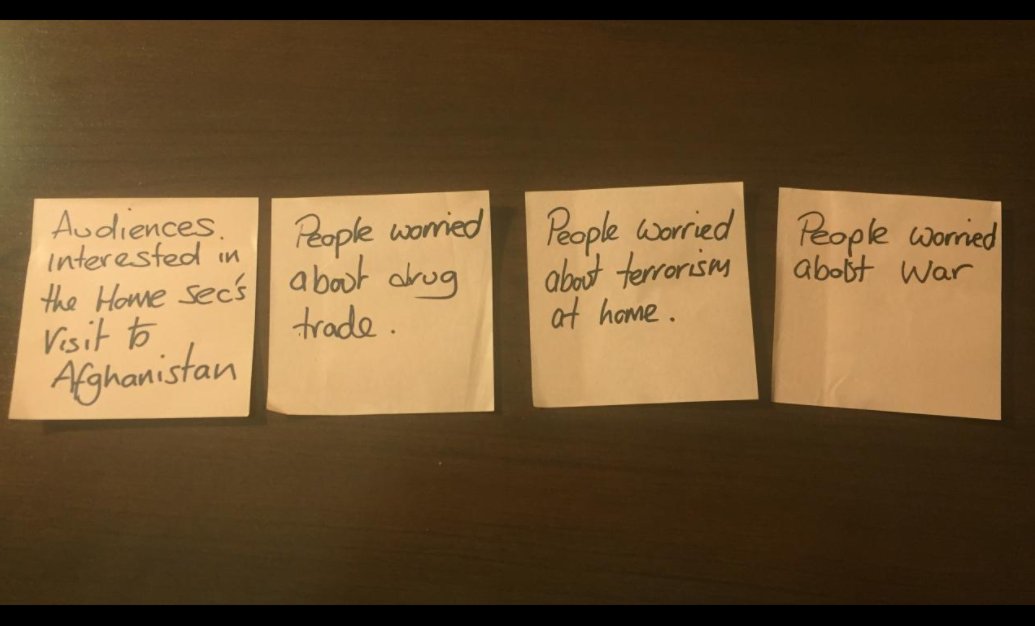 Audiences.
interested in
the Home Sec's
Visit to
Afghanistan
People worried
about drug
trade.
People worried
about terrorism
at home.
People worried
about war